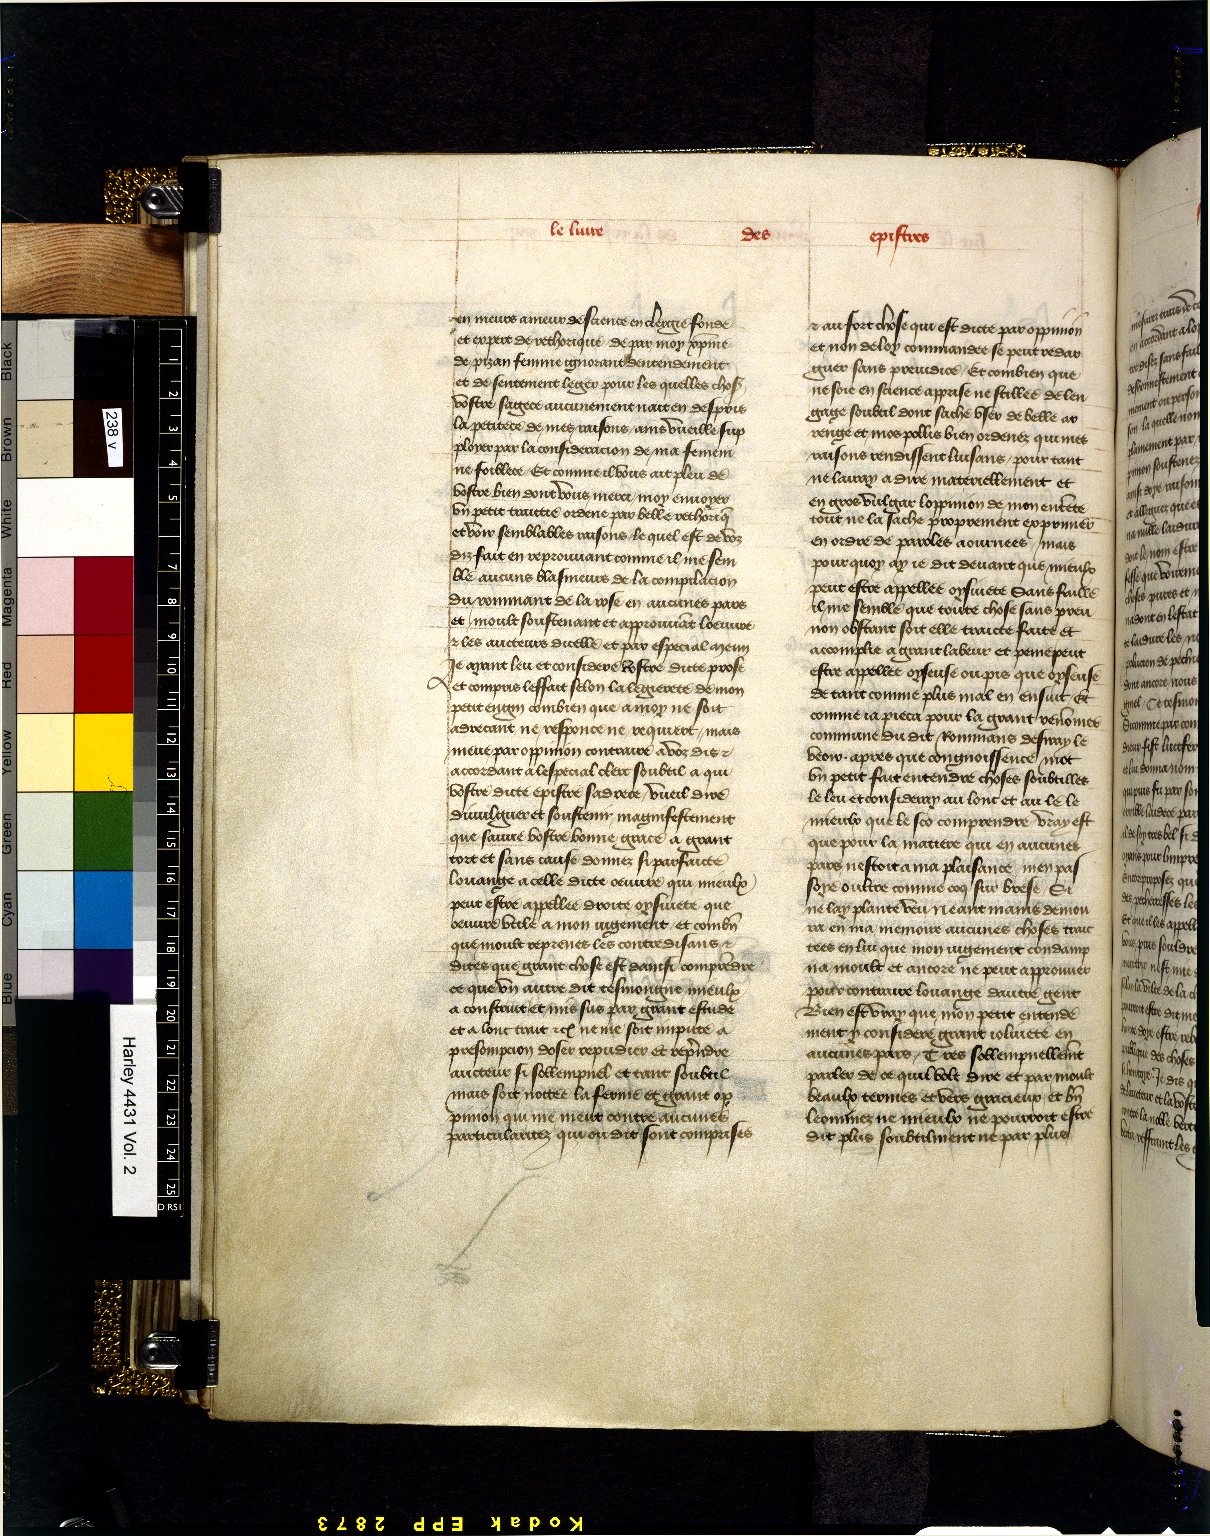 le liure des epistres
en meurs ameur de science en clergie fonde
et expert de rethorique de par moy xpine
de pizan femme ignorant dentendement
et de sentement leger pour les quelles chos
vostre sagece aucunement nait en despris
la petitece de mes raisons ains vueille sup
ployer par la consideracion de ma femem
ne foiblece Et comme il vous ait pleu de
vostre bien dont vous merci moy enuoyer
vn petit traittie ordene par belle rethoriq
et voir semblables raisons le quel est de voz
diz fait en reprouuant comme il me sem
ble aucuns blasmeurs de la compilacion
du rommant de la rose en aucunes pars
et moult soustenant et approuuant loeuure
et les aucteurs dicelle et par especial meun
Je ayant leu et considere vostre dicte prose
et compris leffait selon la legierete de mon
petit engin combien que a moy ne soit
adrecant ne response ne requiert mais
meue par oppinion contraire a voz dis et
accordant a lespecial clerc soubtil a qui
vostre dicte epistre sadrece vueil dire
diuulguer et soustenir magnifestement
que sauue vostre bonne grace a grant
tort et sans cause donnez si parfaicte
louange a celle dicte oeuure qui mieulx
peut estre appellee droite oysiuete que
oeuure vtile a mon iugement et combn
que moult reprenes les contredisans et
dites que grant chose est dainsi comprendre
ce que vn autre dit tesmongne mieulx
a construit et mis sus par grant estude
et a lonc trait etc ne me soit impute a
presompcion doser repudier et reprendre
aucteur si sollempnel et tant soubtil
mais soit nottee la ferme et grant op
pinion qui me meut contre aucunes
particularitez qui ou dit sont comprises
et au fort chose qui est dicte par oppinion
et non de loy commandee se peut redar
guer sans preiudice Et combien que
ne soie en science apprise ne stillee de len
gage soubtil dont sache vser de belle ar
renge et mos pollis bien ordenez qui mes
raisons rendissent luisans pour tant
ne lairay a dire materiellement et
en gros vulgar loppinion de mon entente
tout ne la sache proprement exprimer
en ordre de paroles aournees mais
pourquoy ay ie dit deuant que mieulx
peut estre appellee oysiuete Sans faille
il me semble que toute chose sans preu
non obstant soit elle traictee faite et
accomplie a grant labeur et peine peut
estre appellee oyseuse ou pis que oyseuse
de tant comme plus mal en ensuit Et
comme ia pieca pour la grant renommee
commune du dit Rommans desiray le
veoir apres que congnoissence mot
vn petit fait entendre choses soubtilles
le leu et consideray au lonc et au le le
mieulx que le sco comprendre vray est
que pour la matiere qui en aucunes
pars nestoit a ma plaisance men pas
soye oultre comme coq sur brese Si
ne lay plante veu Neant mains demou
ra en ma memoire aucunes choses trait
tees en lui que mon iugement condamp
na moult et ancore ne peut approuuer
pour contraire louange dautre gent
Bien est vray que mon petit entende
ment y considere grant ioliuete en
aucunes pars Tres sollempnellemt
parler de ce quil volt dire et par moult
beaulx termes et vers gracieux et bn
leominez ne mieulx ne pourroit estre
dit plus soubtilment ne par plus
238 v
Harley 4431 Vol. 2
Black
Brown
White
Magenta
Red
Yellow
Green
Cyan
Blue
Kodak EPP 2873